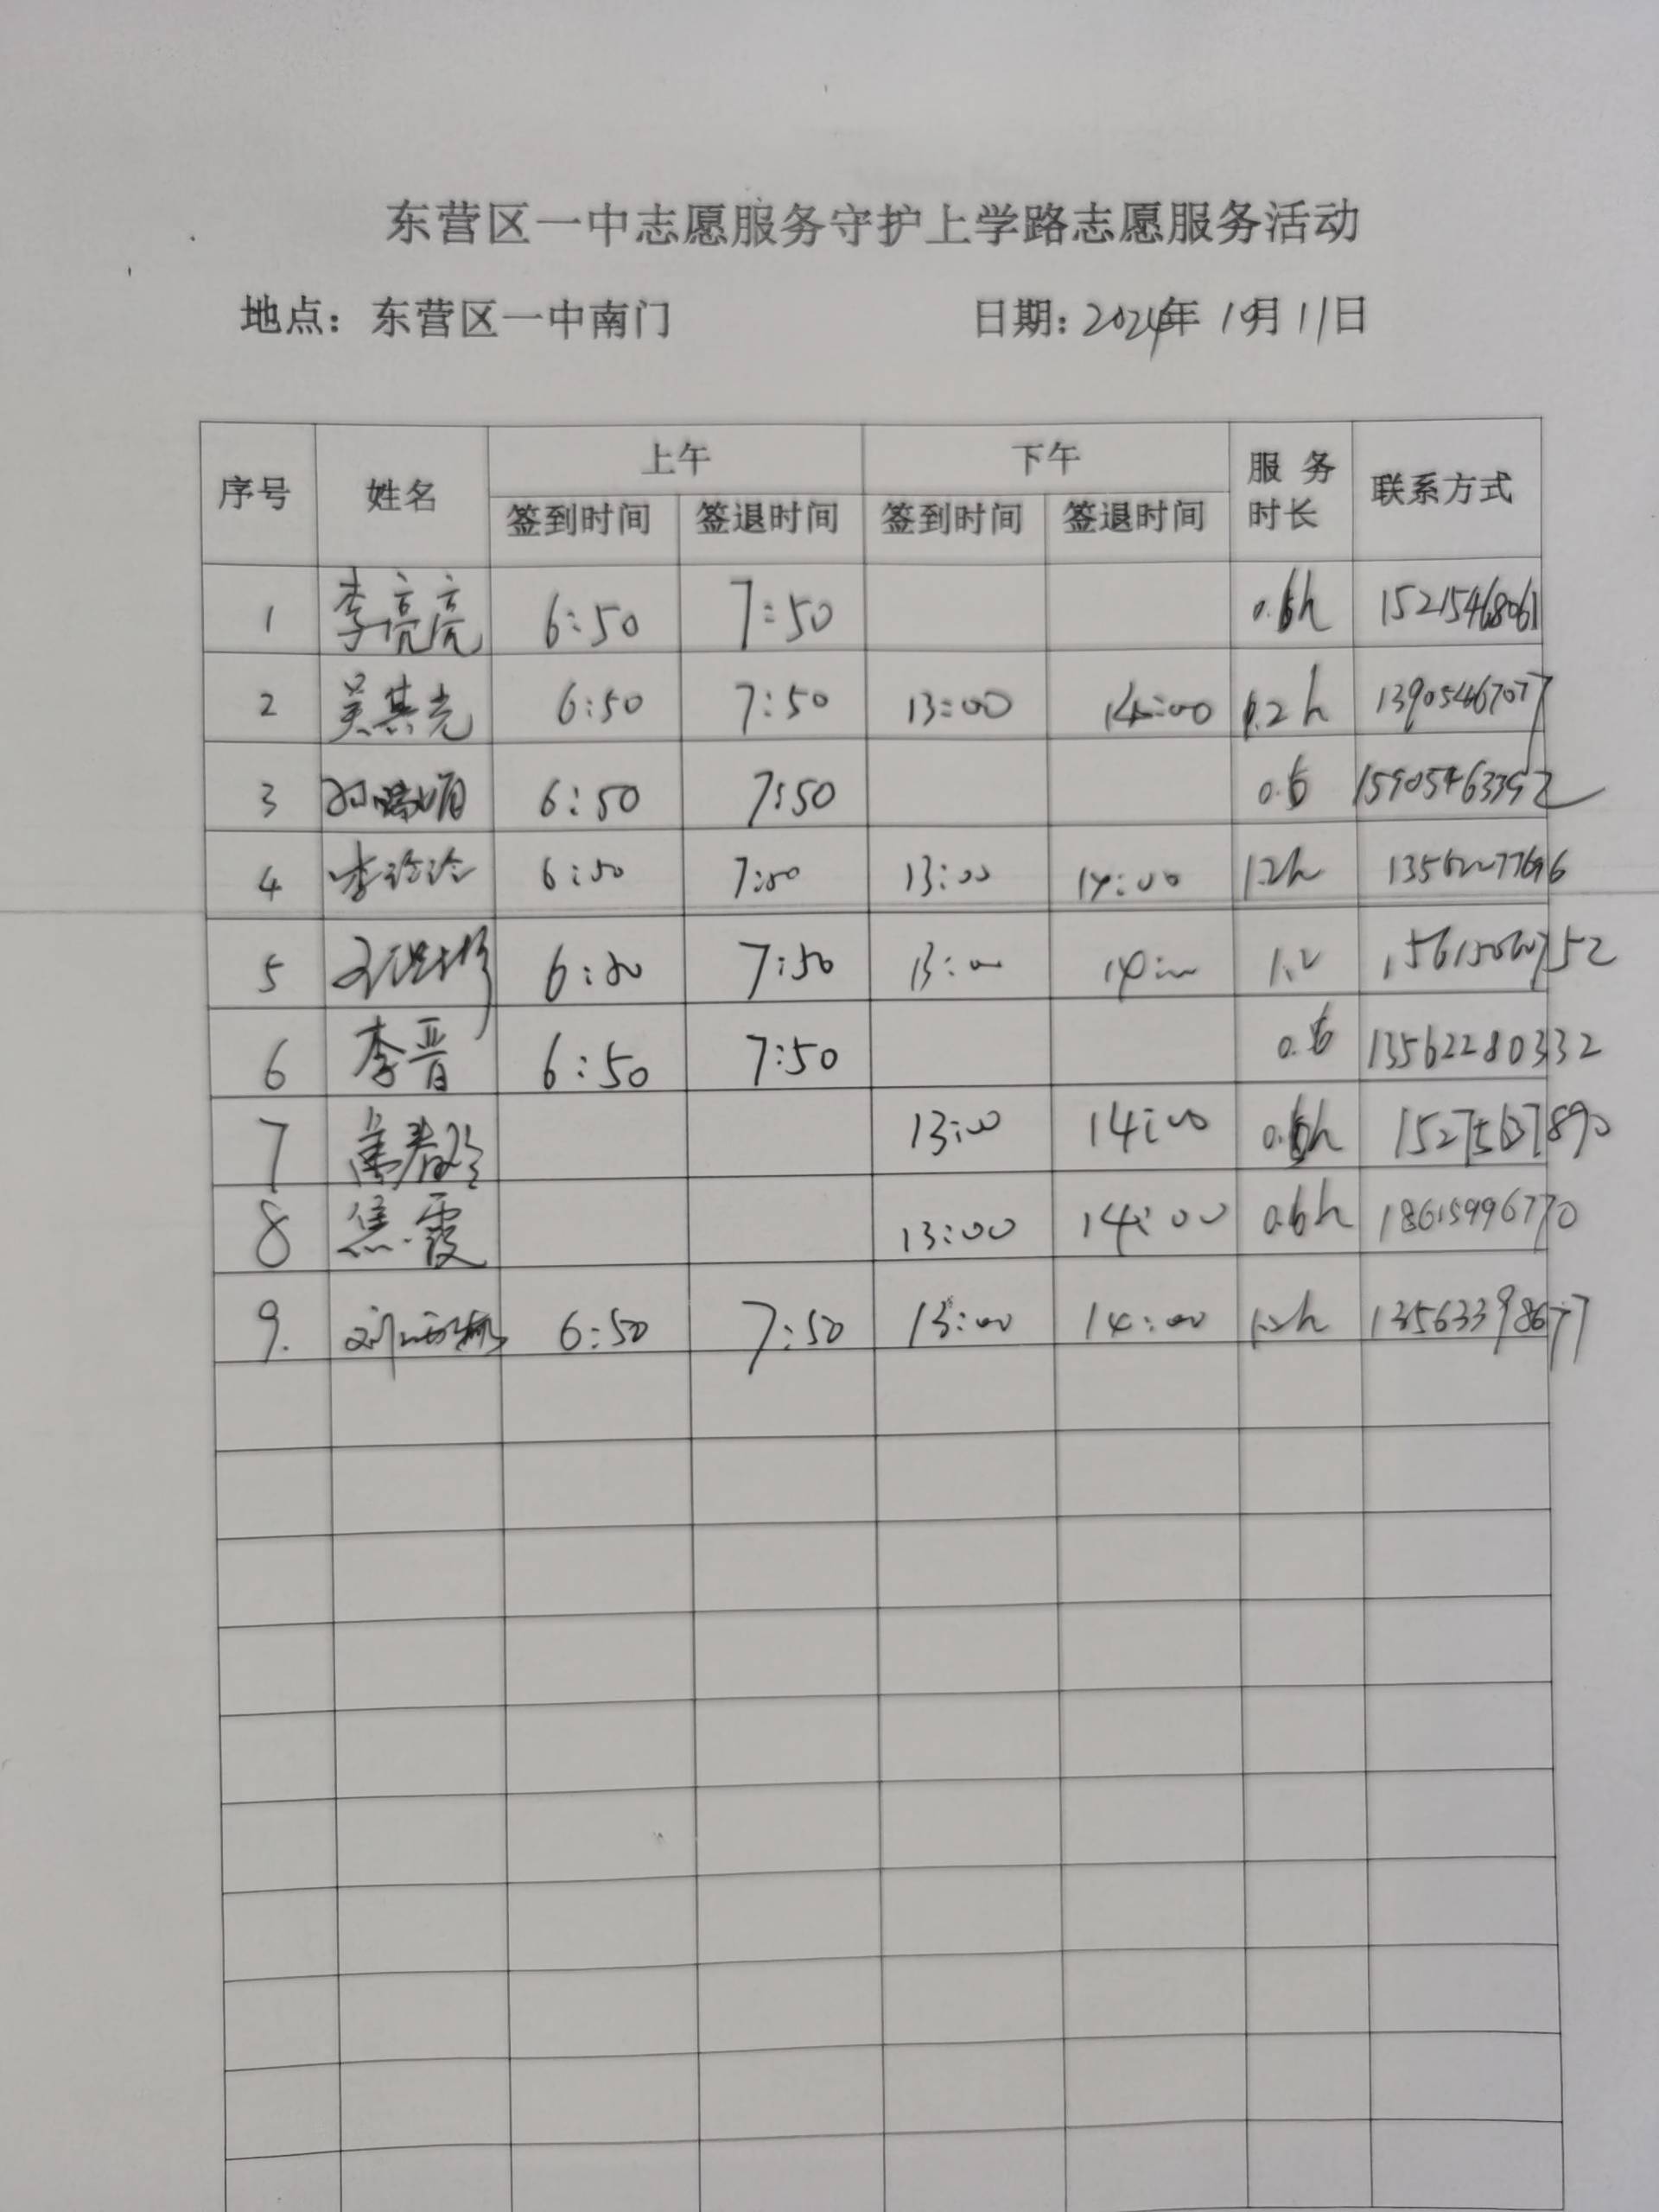 东营区一中志愿服务守护上学路志愿服务活动
地点：东营区一中南门 日期：2024年10月11日
序号 姓名 上午 下午 服务时长 联系方式
签到时间 签退时间 签到时间 签退时间
1 李亮亮 6:50 7:50 0.6h 15215468061
2 吴其光 6:50 7:50 13:00 14:00 1.2h 13905467077
3 6:50 7:50 0.6 15905463392
4 李 6:50 7:50 13:00 14:00 1.2h
5 6:50 7:50 13:00 14:00 1.2
6 李晋 6:50 7:50 0.6 13562280332
7 13:00 14:00 0.6h 15275637890
8 焦霞 13:00 14:00 0.6h 18615996770
9. 刘 6:50 7:50 13:00 14:00 1.2h 13563398677